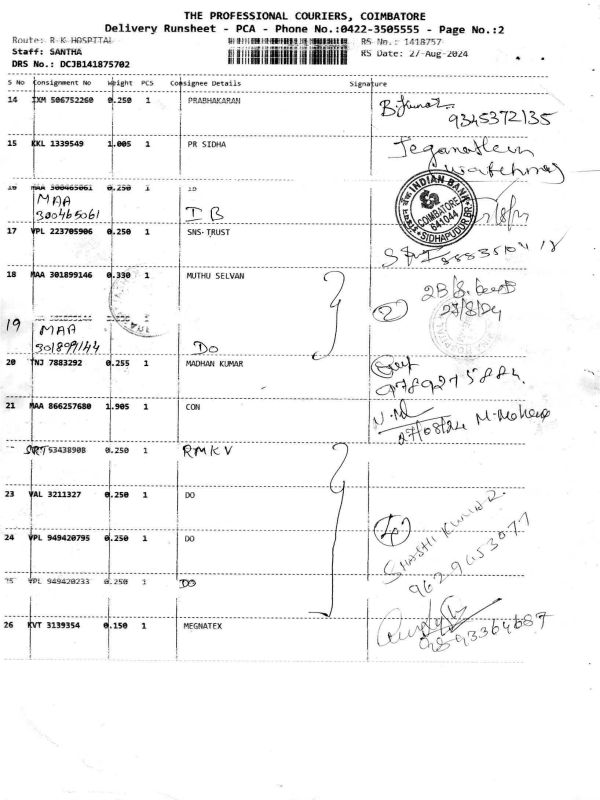 THE PROFESSIONAL COURIERS, COIMBATORE
Delivery Runsheet - PCA - Phone No.:0422-3505555 - Page No.:2
Route: R K HOSPITAL RS No.: 1418757
Staff: SANTHA RS Date: 27-Aug-2024
DRS No.: DCJB141875702
S No Consignment No Weight PCS Consignee Details Signature
14 IXM 506752260 0.250 1 PRABHAKARAN
9345372135
15 KKL 1339549 1.005 1 PR SIDHA
16 MAA 300465061 0.250 1 IB
MAA
300465061 IB
INDIAN BANK
COIMBATORE
641044
SIDHAPUDUR BR.
17 VPL 223705906 0.250 1 SNS-TRUST
18 MAA 301899146 0.330 1 MUTHU SELVAN
2
27/8/24
19 MAA
301899144 DO
20 TNJ 7883292 0.255 1 MADHAN KUMAR
21 MAA 866257680 1.905 1 CON
27/08/24
SRT 53438908 0.250 1 RMKV
23 VAL 3211327 0.250 1 DO
24 VPL 949420795 0.250 1 DO
4
25 VPL 949420233 0.250 1 DO
26 KVT 3139354 0.150 1 MEGNATEX